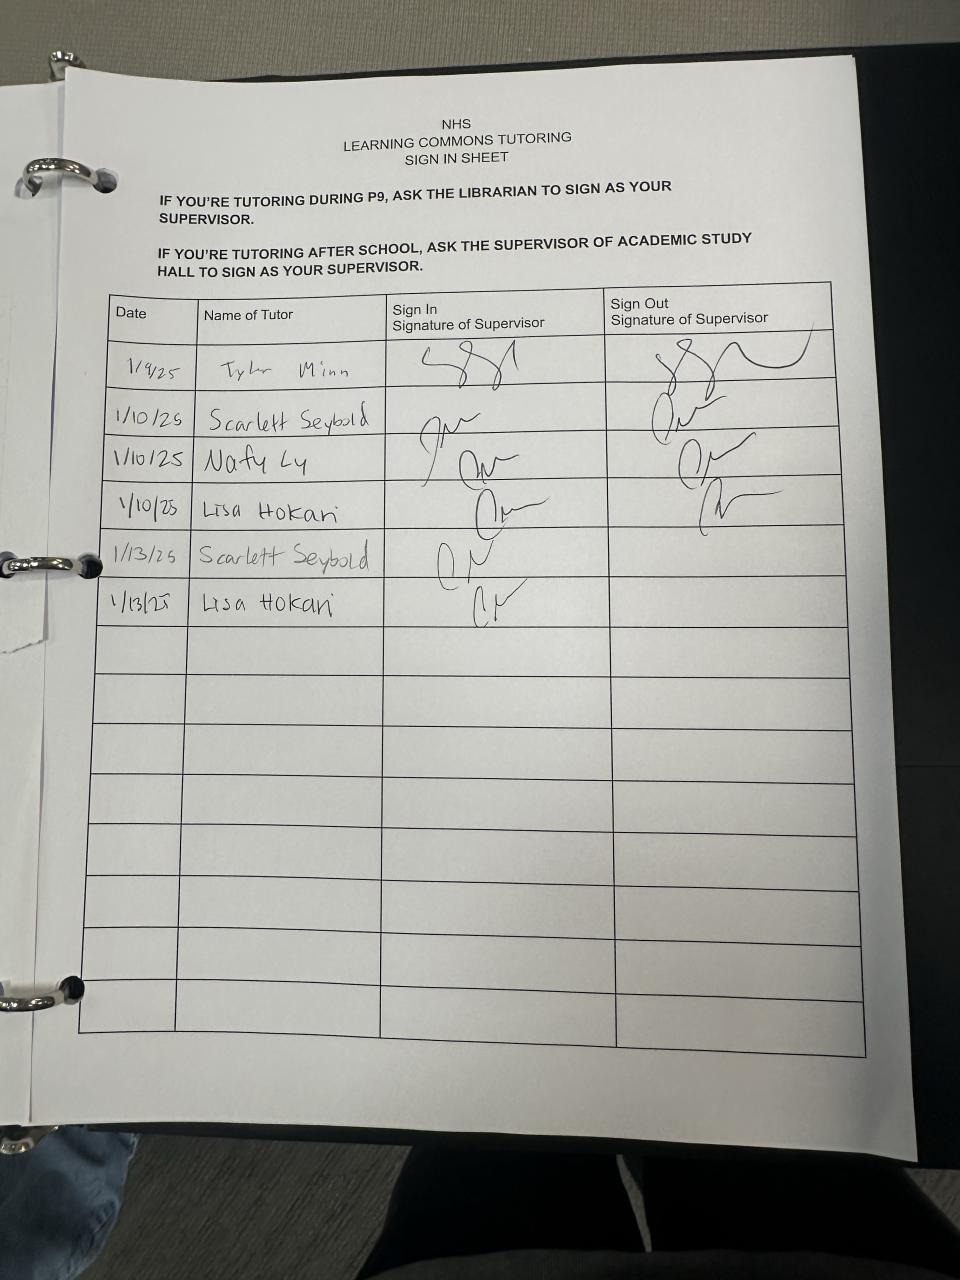 NHS
LEARNING COMMONS TUTORING
SIGN IN SHEET
IF YOU'RE TUTORING DURING P9, ASK THE LIBRARIAN TO SIGN AS YOUR
SUPERVISOR.
IF YOU'RE TUTORING AFTER SCHOOL, ASK THE SUPERVISOR OF ACADEMIC STUDY
HALL TO SIGN AS YOUR SUPERVISOR.
Date Name of Tutor Sign In Signature of Supervisor Sign Out Signature of Supervisor
1/9/25 Tyler Minn
1/10/25 Scarlett Seybold
1/10/25 Nafy Ly
1/10/25 Lisa Hokari
1/13/25 Scarlett Seybold
1/13/25 Lisa Hokari